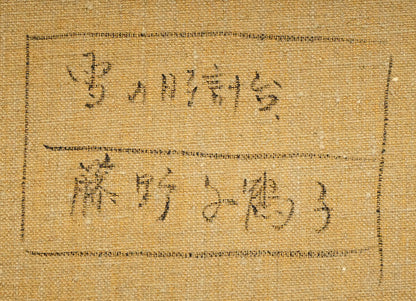 雪の時計台
藤野千鶴子